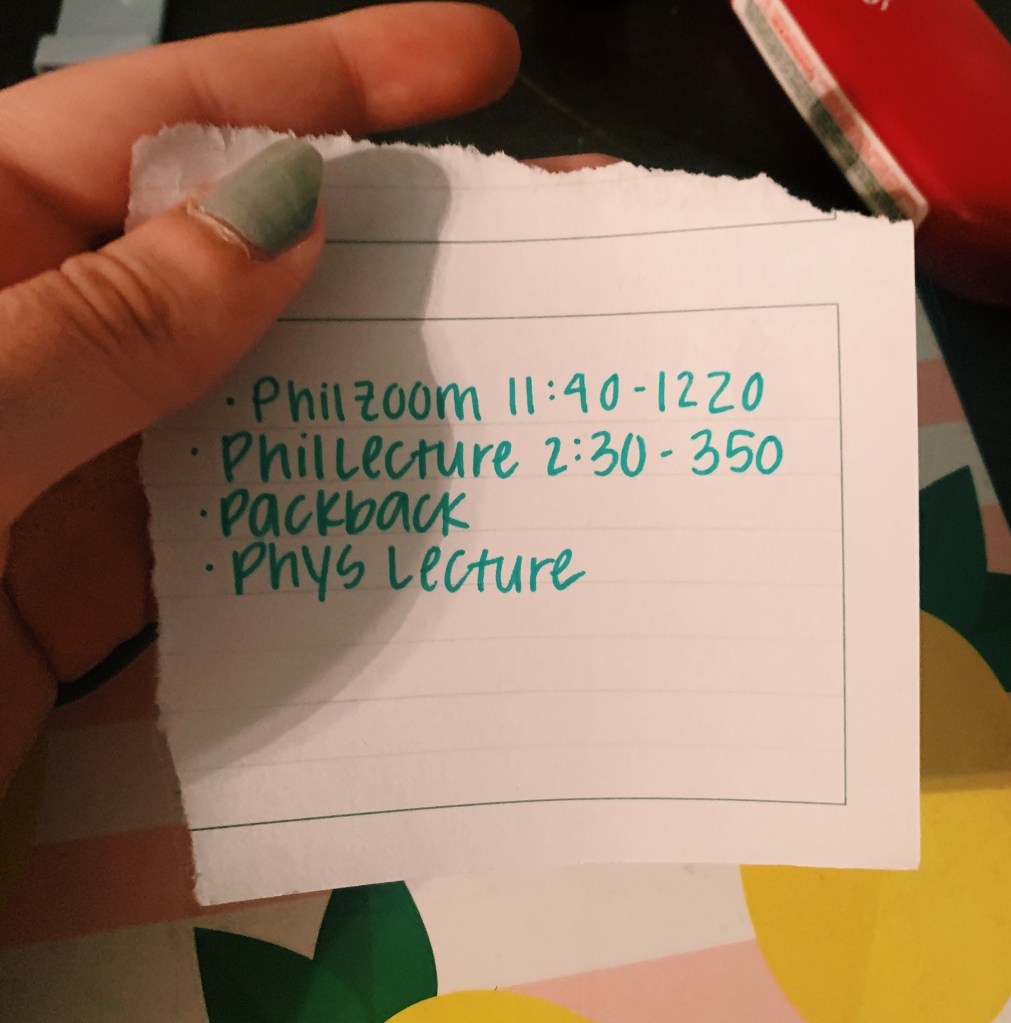 · Phil zoom 11:40-1220
· Phil Lecture 2:30-350
· Packback
· Phys Lecture